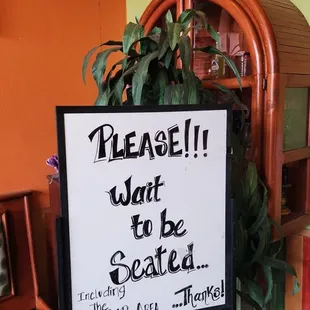 PLEASE!!!
Wait
to be
Seated...
...Thanks!
Including
The
AREA